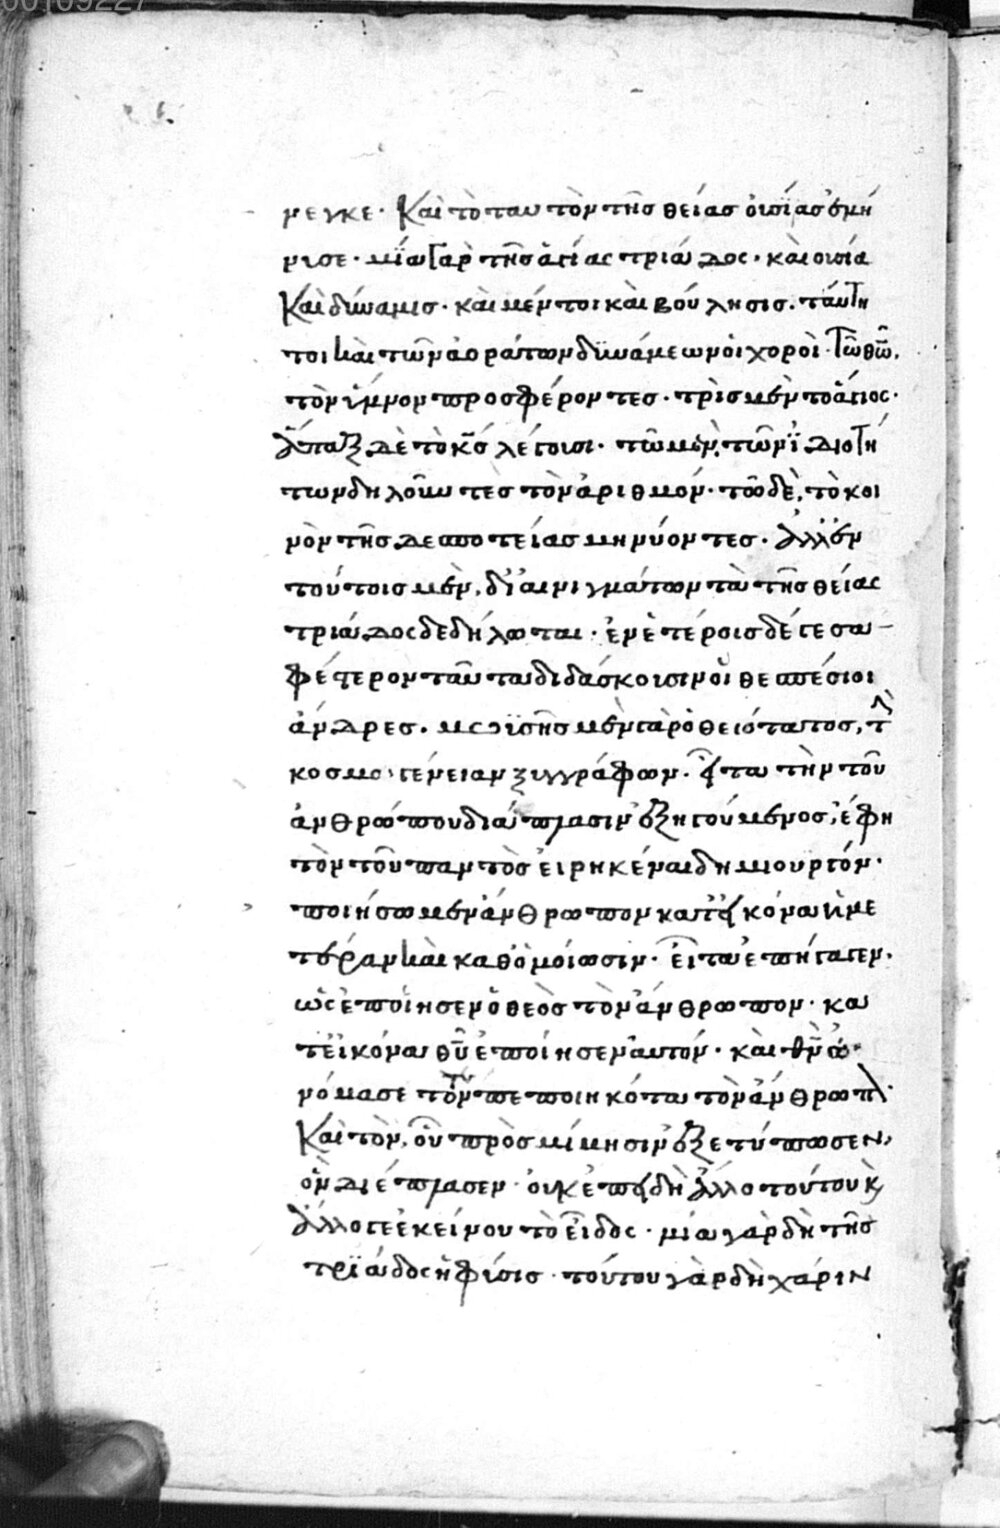 νεγκε· Καὶ τὸ ταυτὸν τῆς θείας οὐσίας ἐμή
νυσε· μία γὰρ τῆς ἁγίας τριάδος· καὶ οὐσία
Καὶ δύναμις· καὶ μέν τοι καὶ βούλησις· ταύτη
τοι καὶ τῶν ἀοράτων δυνάμεων οἱ χοροὶ· τῶ θῶ,
τὸν ὕμνον προσφέροντες· τρὶς μὲν τὸ ἅγιος·
ἅπαξ δὲ τὸ κς λέγουσι· τῶ μὲν, τῶν ἰδιοτή
των δηλοῦντες τὸν ἀριθμόν· τῶ δὲ, τὸ κοι
νὸν τῆς δεσποτείας μηνύοντες· ἀλλ' ἐν
τούτοις μὲν, δι' αἰνιγμάτων τὰ τῆς θείας
τριάδος δεδήλωται· ἐν ἑτέροις δέ γε σα
φέστερον ταῦτα διδάσκουσιν οἱ θεσπέσιοι
ἄνδρες. μωϋσῆς μὲν γὰρ ὁ θειότατος, τὴν
κοσμογένειαν ξυγγράφων· εἶτα τὴν τοῦ
ἀνθρώπου διάπλασιν ἐξηγούμενος, ἔφη
τὸν τοῦ παντὸς εἰρηκέναι δημιουργόν·
ποιήσωμεν ἄνθρωπον κατ' εἰκόνα ἡμε
τέραν καὶ καθ' ὁμοίωσιν· εἶτα ἐπήγαγεν·
ὡς ἐποίησεν ὁ θεὸς τὸν ἄνθρωπον· κα
τ' εἰκόνα θῦ ἐποίησεν αὐτόν· καὶ θν ὠ
νόμασε τὸν πεποιηκότα τὸν ἄνθρωπον·
Καὶ τὸν, οὗ πρὸς μίμησιν ἐξετύπωσεν,
ὃν διέπλασεν· οὐκ ἐπειδὴ ἄλλο τούτου καὶ
ἄλλο γε ἐκείνου τὸ εἶδος· μία γὰρ δὴ τῆς
τριάδος ἡ φύσις· τούτου γὰρ δὴ χάριν